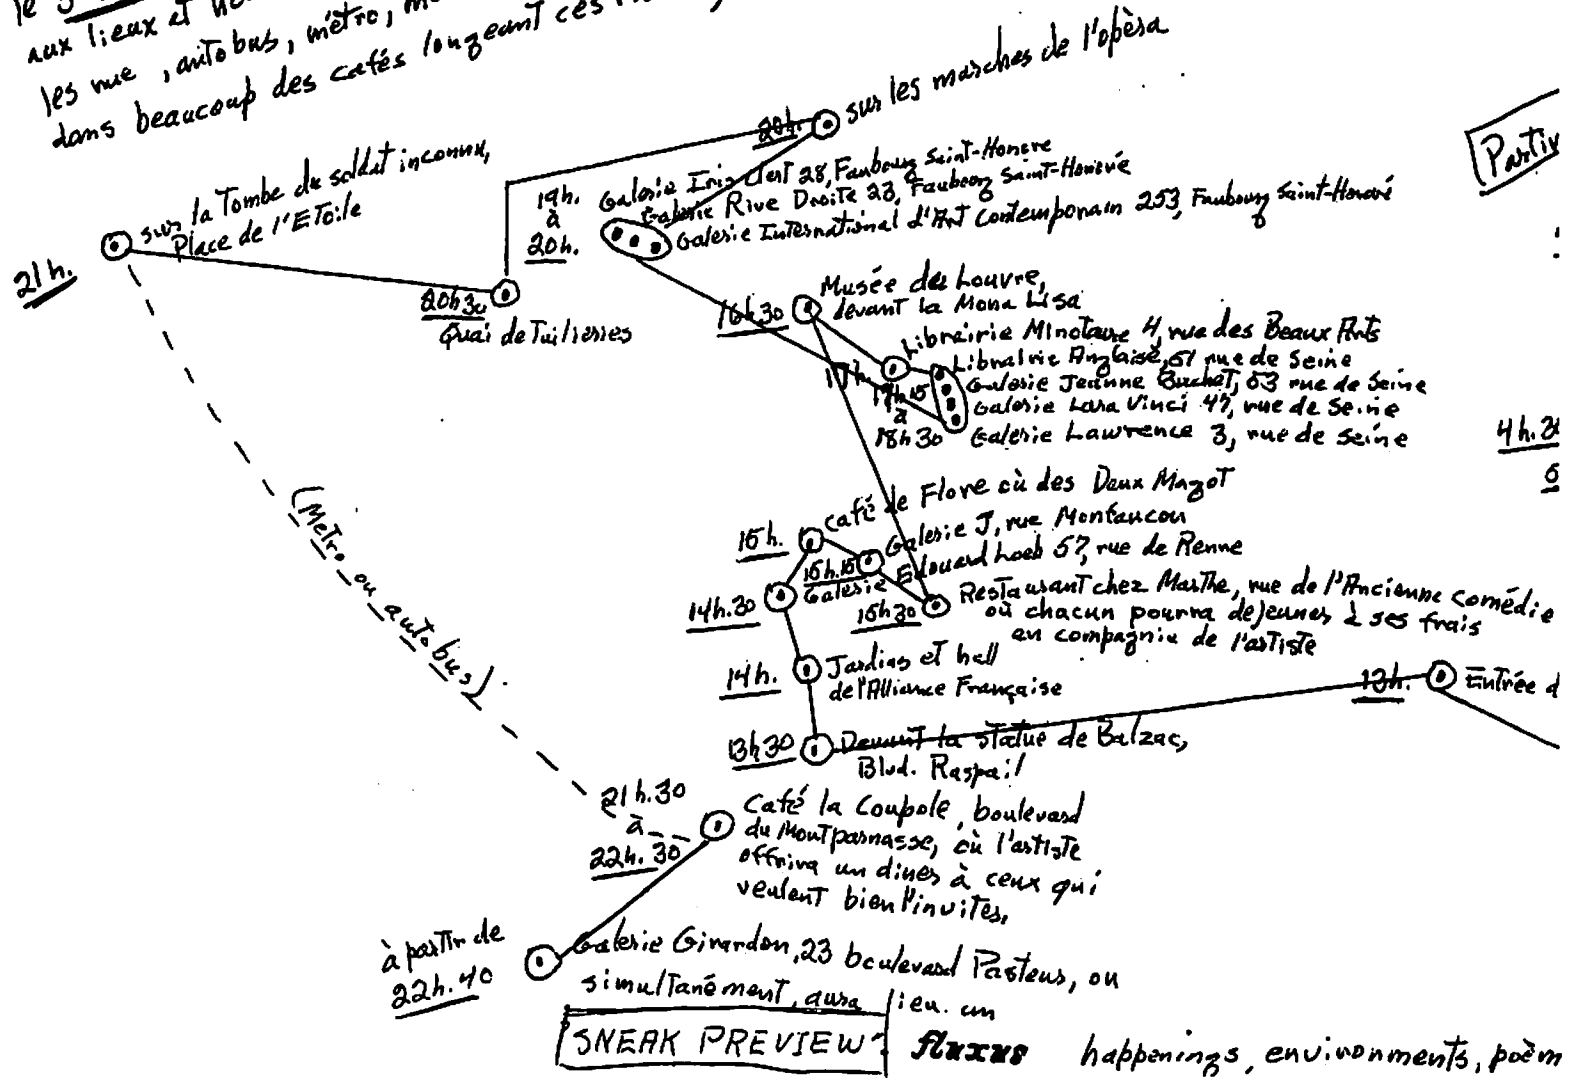 le
aux lieux et
les rue, autobus, métro,
dans beaucoup des cafés longeant ces
20h. sur les marches de l'opèra
sur la Tombe du soldat inconnu,
Place de l'Etoile
21h.
19h.
à
20h.
Galerie Iris Clert 28, Faubourg Saint-Honore
Galerie Rive Droite 23, Faubourg Saint-Honoré
Galerie International d'Art Contemporain 253, Faubourg Saint-Honoré
20h30
Quai de Tuilieries
16h30 Musée du Louvre,
devant la Mona Lisa
17h. Librairie Minotaure 4, rue des Beaux Arts
17h15
à
18h30
Librairie Anglaise, 51 rue de Seine
Galerie Jeanne Buchet, 53 rue de Seine
Galerie Lara Vinci 47, rue de Seine
Galerie Lawrence 3, rue de Seine
4h.3
15h. Café de Flore où des Deux Magot
15h.15 Galerie J, rue Montfaucon
14h.30 Galerie Edouard Loeb 57, rue de Renne
15h30 Restaurant chez Marthe, rue de l'Ancienne comédie
où chacun pourra dejeuner à ses frais
en compagnie de l'artiste
14h. Jardins et hall
de l'Alliance Française
13h. Entrée d
13h30 Devant la statue de Balzac,
Blvd. Raspail
(Metro ou autobus)
21h.30
à
22h.30
Café la Coupole, boulevard
du Montparnasse, où l'artiste
offrira un diner à ceux qui
veulent bien l'inviter,
à partir de
22h.40
Galerie Girardon, 23 boulevard Pasteur, ou
simultanément, aura lieu un
SNEAK PREVIEW:
fluxus happenings, environments, poèm